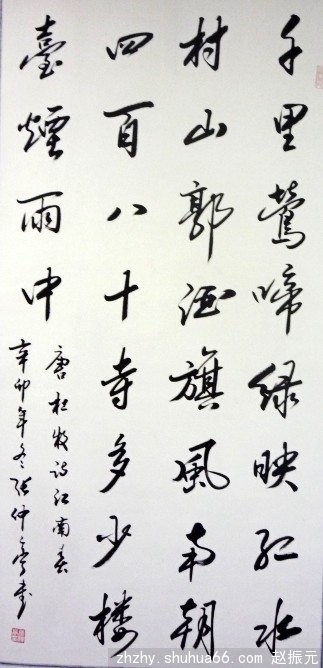 千里鶯啼绿映红水
村山郭酒旗風南朝
四百八十寺多少楼
臺煙雨中
唐杜牧诗江南春
辛卯年冬张仲亭书
zhzhy.shuhua66.com 赵振元